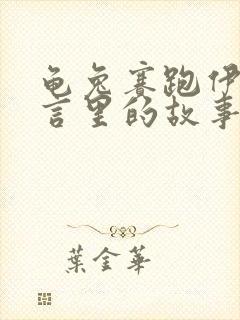 龟兔赛跑伊
言里的故事
葉金華